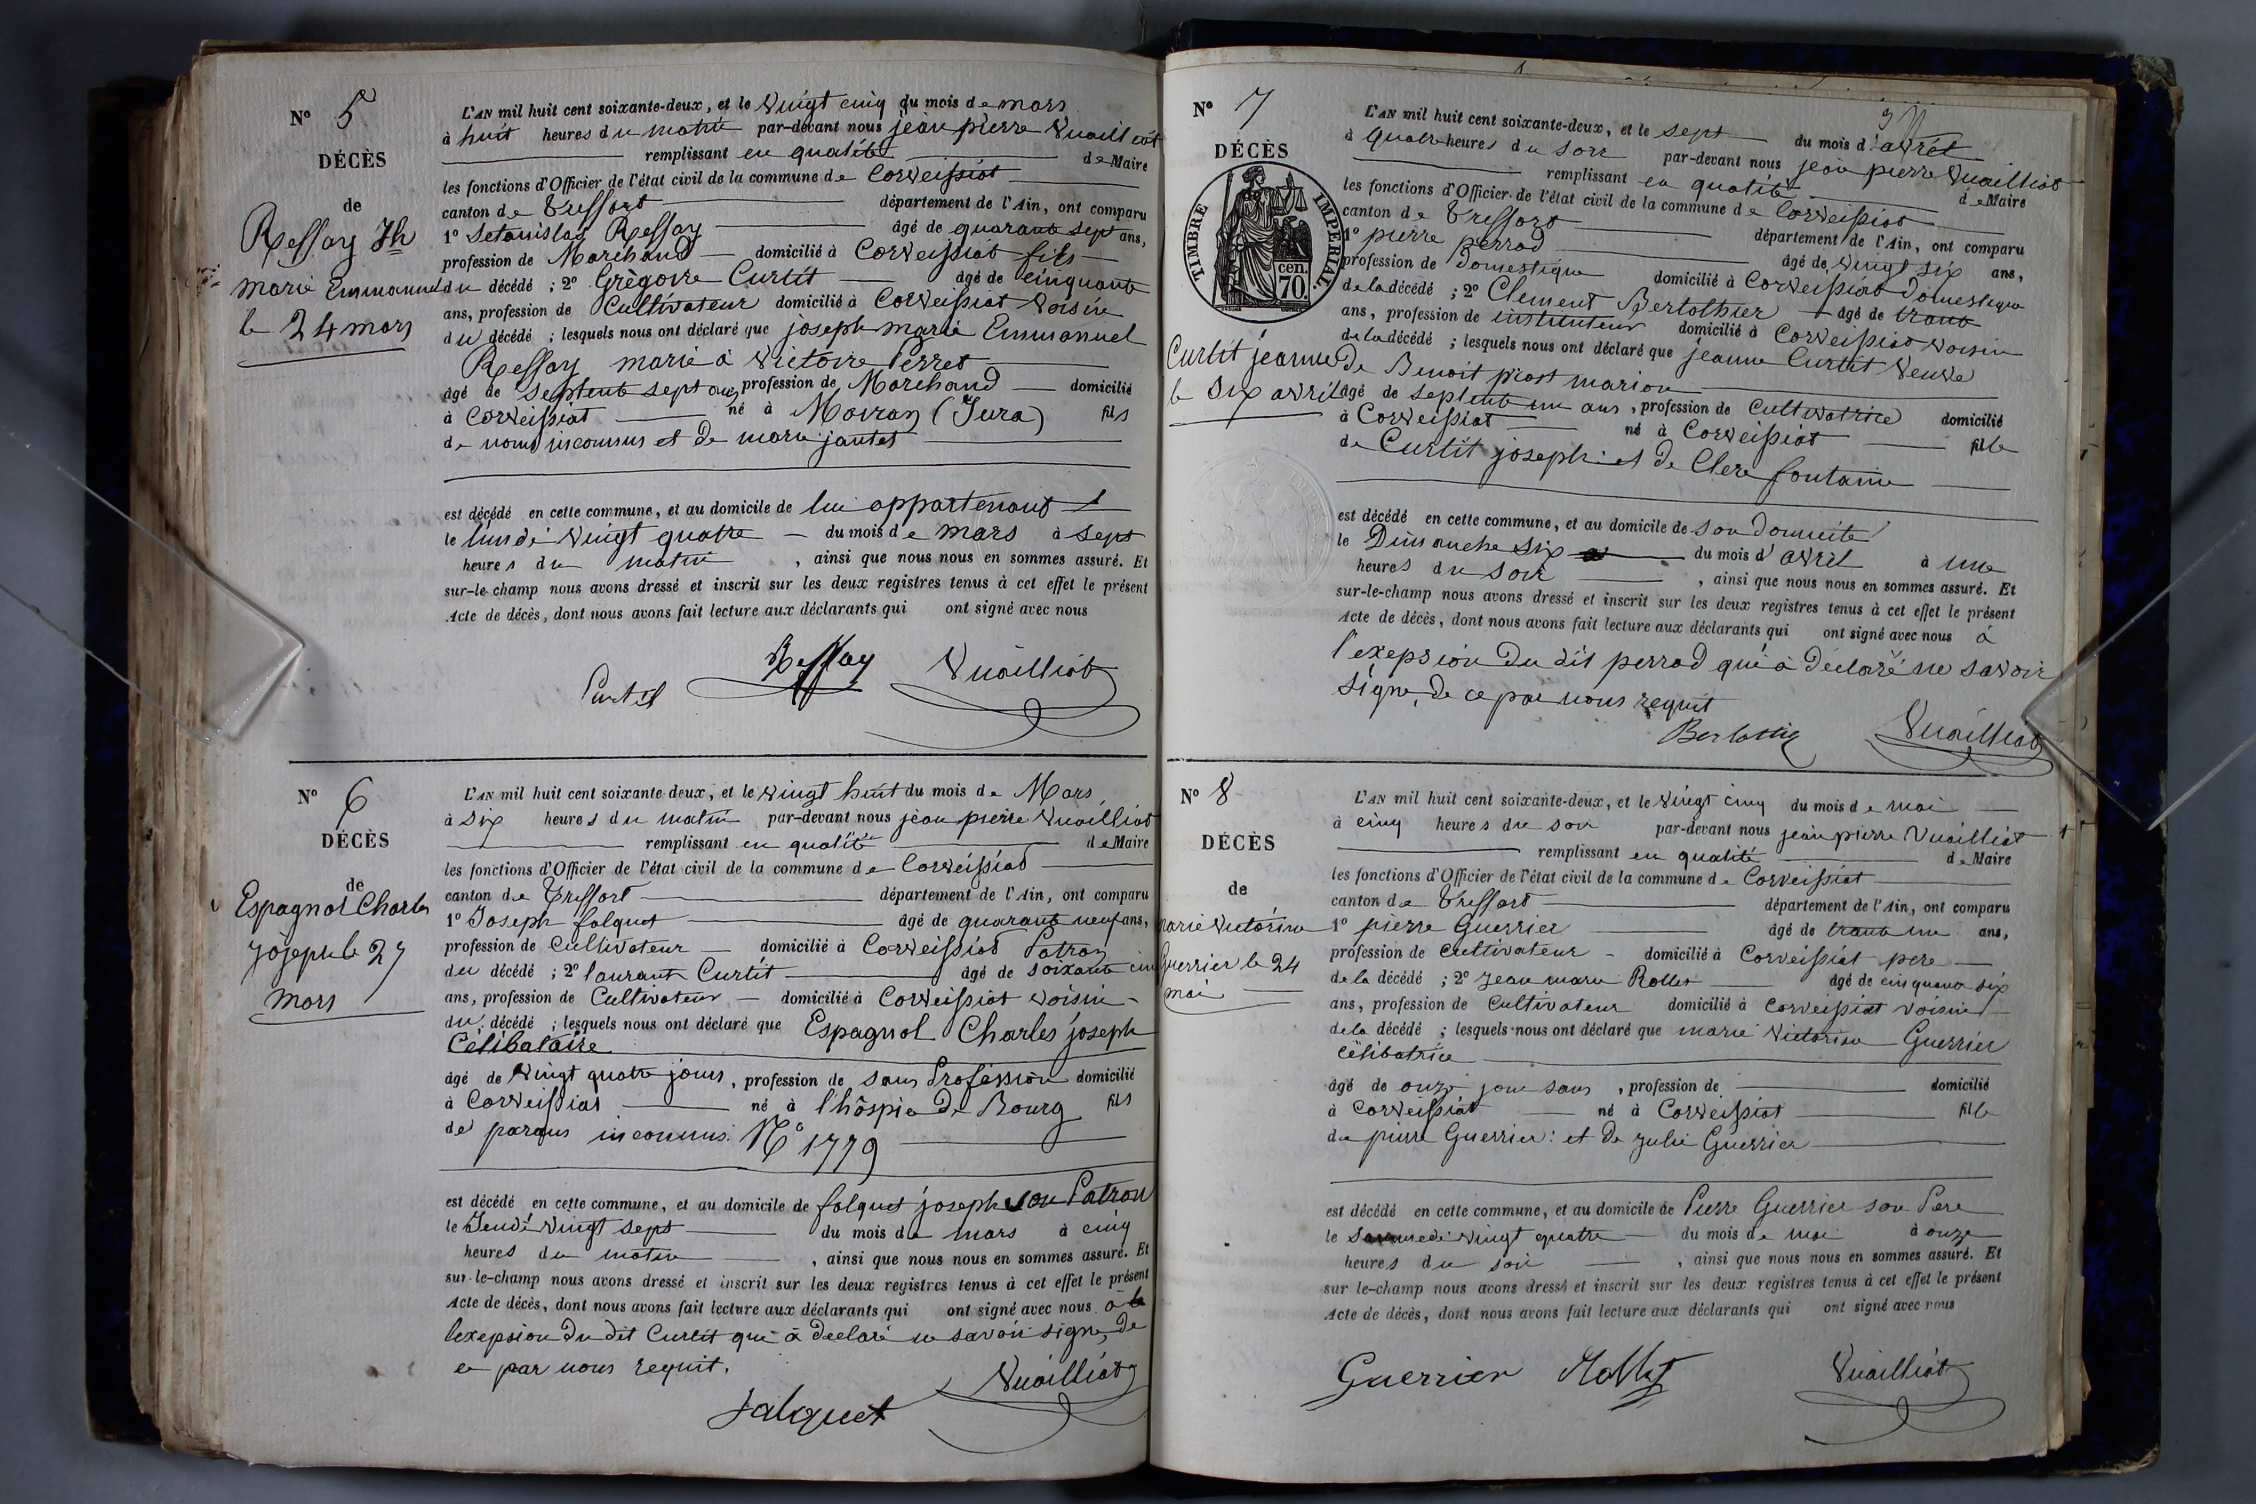 N° 5
DÉCÈS
de
Ressay Jh
marie Emmanuel
le 24 mars
L'AN mil huit cent soixante-deux, et le vingt cinq du mois de mars
à huit heures du matin par-devant nous jean pierre Vuailliat
remplissant en qualité de Maire
les fonctions d'Officier de l'état civil de la commune de Corveissiat
canton de Treffort département de l'Ain, ont comparu
1° Setanislas Ressay âgé de quarante sept ans,
profession de Marchand domicilié à Corveissiat fils
du décédé ; 2° Grègoire Curtit âgé de cinquante
ans, profession de Cultivateur domicilié à Corveissiat voisin
du décédé ; lesquels nous ont déclaré que joseph marie Emmanuel
Ressay marié à victoire Perret
âgé de septente sept ans, profession de Marchand domicilié
à Corveissiat né à Moiran (Jura) fils
de noms inconnus et de marie jantet
est décédé en cette commune, et au domicile de lui appartenant
le lundi vingt quatre du mois de mars à sept
heures du matin, ainsi que nous nous en sommes assuré. Et
sur-le-champ nous avons dressé et inscrit sur les deux registres tenus à cet effet le présent
Acte de décès, dont nous avons fait lecture aux déclarants qui ont signé avec nous
Curtit Ressay Vuailliat
N° 6
DÉCÈS
de
Espagnol Charles
joseph le 27
mars
L'AN mil huit cent soixante-deux, et le vingt huit du mois de Mars
à six heures du matin par-devant nous jean pierre Vuailliat
remplissant en qualité de Maire
les fonctions d'Officier de l'état civil de la commune de Corveissiat
canton de Treffort département de l'Ain, ont comparu
1° Joseph falquet âgé de quarante neuf ans,
profession de cultivateur domicilié à Corveissiat Patron
du décédé ; 2° laurant Curtit âgé de soixante cinq
ans, profession de Cultivateur domicilié à Corveissiat voisin
du décédé ; lesquels nous ont déclaré que Espagnol Charles joseph
Célibataire
âgé de vingt quatre jours, profession de sans Profession domicilié
à Corveissiat né à l'hôspice de Bourg fils
de parans inconnus N° 1779
est décédé en cette commune, et au domicile de falquet joseph son Patron
le Jeudi vingt sept du mois de mars à cinq
heures du matin, ainsi que nous nous en sommes assuré. Et
sur-le-champ nous avons dressé et inscrit sur les deux registres tenus à cet effet le présent
Acte de décès, dont nous avons fait lecture aux déclarants qui ont signé avec nous à
l'exepsion du dit Curtit qui à declaré ne savoir signe, de
ce par nous requit.
Vuailliat
falquet
N° 7
DÉCÈS
TIMBRE IMPERIAL.
cen.
70.
Curtit jeanne
le six avril
L'AN mil huit cent soixante-deux, et le sept du mois d'avril
à quatre heures du soir par-devant nous jean pierre Vuailliat
remplissant en qualité de Maire
les fonctions d'Officier de l'état civil de la commune de Corveissiat
canton de Treffort département de l'Ain, ont comparu
1° pierre perrod âgé de vingt six ans,
profession de domestique domicilié à Corveissiat domestique
de la décédé ; 2° Clement Bertolhier âgé de trante
ans, profession de instituteur domicilié à Corveissiat voisin
de la décédé ; lesquels nous ont déclaré que jeanne Curtit veuve
de Benoit prost marion
âgé de septente un ans, profession de Cultivatrice domicilié
à Corveissiat né à Corveissiat fille
de Curtit joseph et de Clere fontaine
est décédé en cette commune, et au domicile de son domicile
le Dimanche six du mois d'avril à une
heures du soir, ainsi que nous nous en sommes assuré. Et
sur-le-champ nous avons dressé et inscrit sur les deux registres tenus à cet effet le présent
Acte de décès, dont nous avons fait lecture aux déclarants qui ont signé avec nous à
l'exepsion du dit perrod qui à déclaré ne savoir
signe, de ce par nous requit
Vuailliat
N° 8
DÉCÈS
de
marie victorine
Guerrier le 24
mai
L'AN mil huit cent soixante-deux, et le vingt cinq du mois de mai
à cinq heures du soir par-devant nous jean pierre Vuailliat
remplissant en qualité de Maire
les fonctions d'Officier de l'état civil de la commune de Corveissiat
canton de Treffort département de l'Ain, ont comparu
1° pierre Guerrier âgé de trante un ans,
profession de cultivateur domicilié à Corveissiat pere
de la décédé ; 2° jean marie Rollet âgé de cinquante six
ans, profession de cultivateur domicilié à Corveissiat voisin
de la décédé ; lesquels nous ont déclaré que marie victorine Guerrier
célibatrice
âgé de onze jour sans, profession de domicilié
à Corveissiat né à Corveissiat fille
de pierre Guerrier et de julie Guerrier
est décédé en cette commune, et au domicile de Pierre Guerrier son Père
le Sammedi vingt quatre du mois de mai à onze
heures du soir, ainsi que nous nous en sommes assuré. Et
sur-le-champ nous avons dressé et inscrit sur les deux registres tenus à cet effet le présent
Acte de décès, dont nous avons fait lecture aux déclarants qui ont signé avec nous
Guerrier Rollet Vuailliat